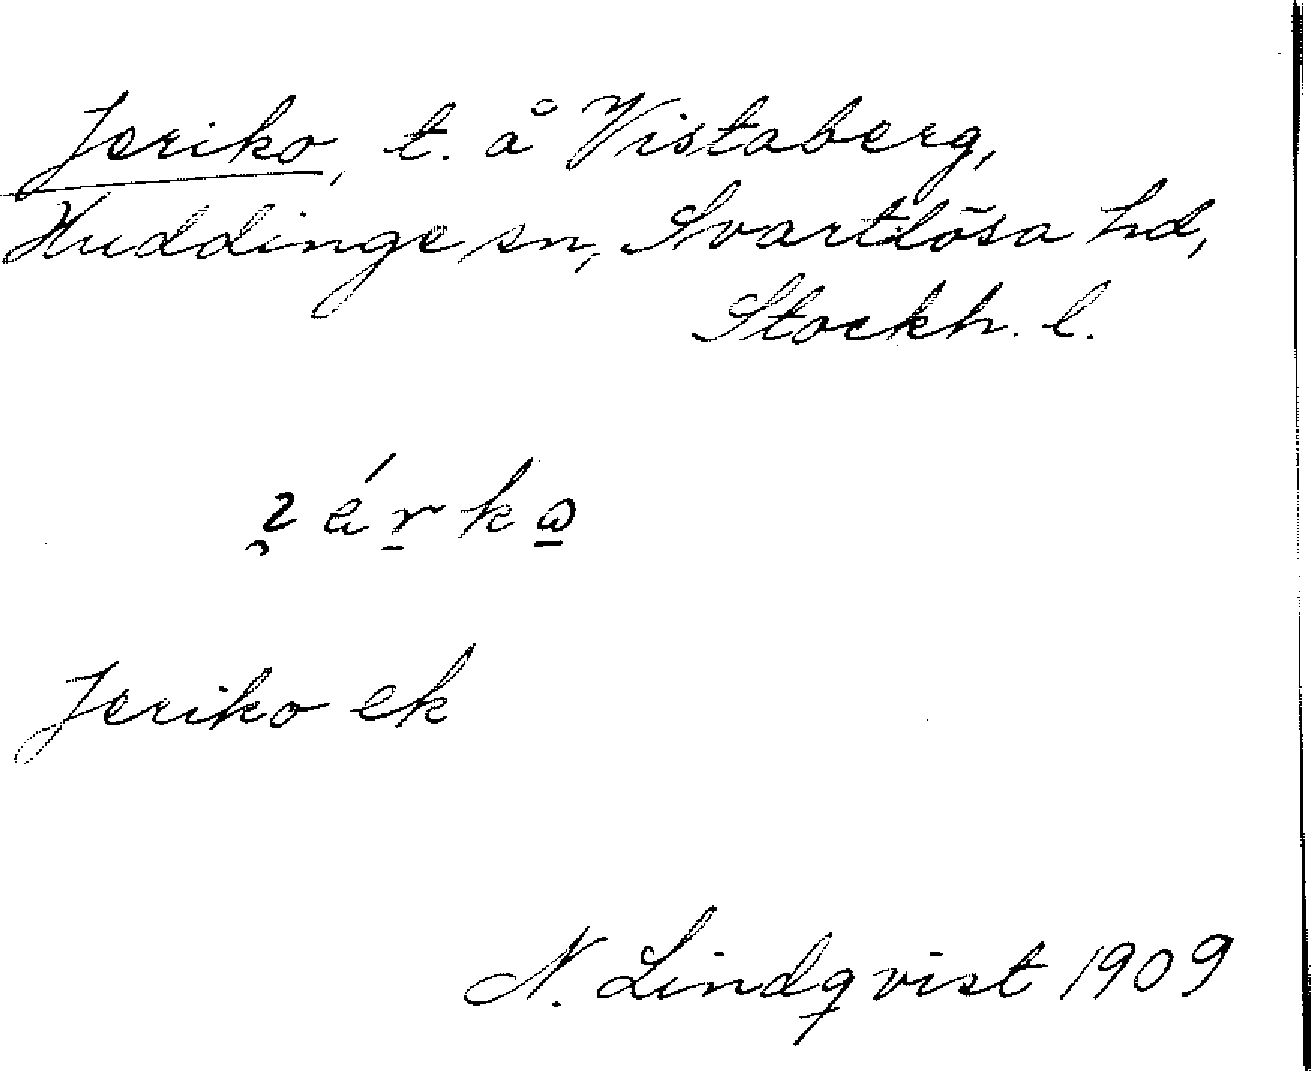 Jeriko, t. å Vistaberg,
Huddinge sn, Svartlösa hd,
Stockh. l.
Jeriko ek
N. Lindqvist 1909